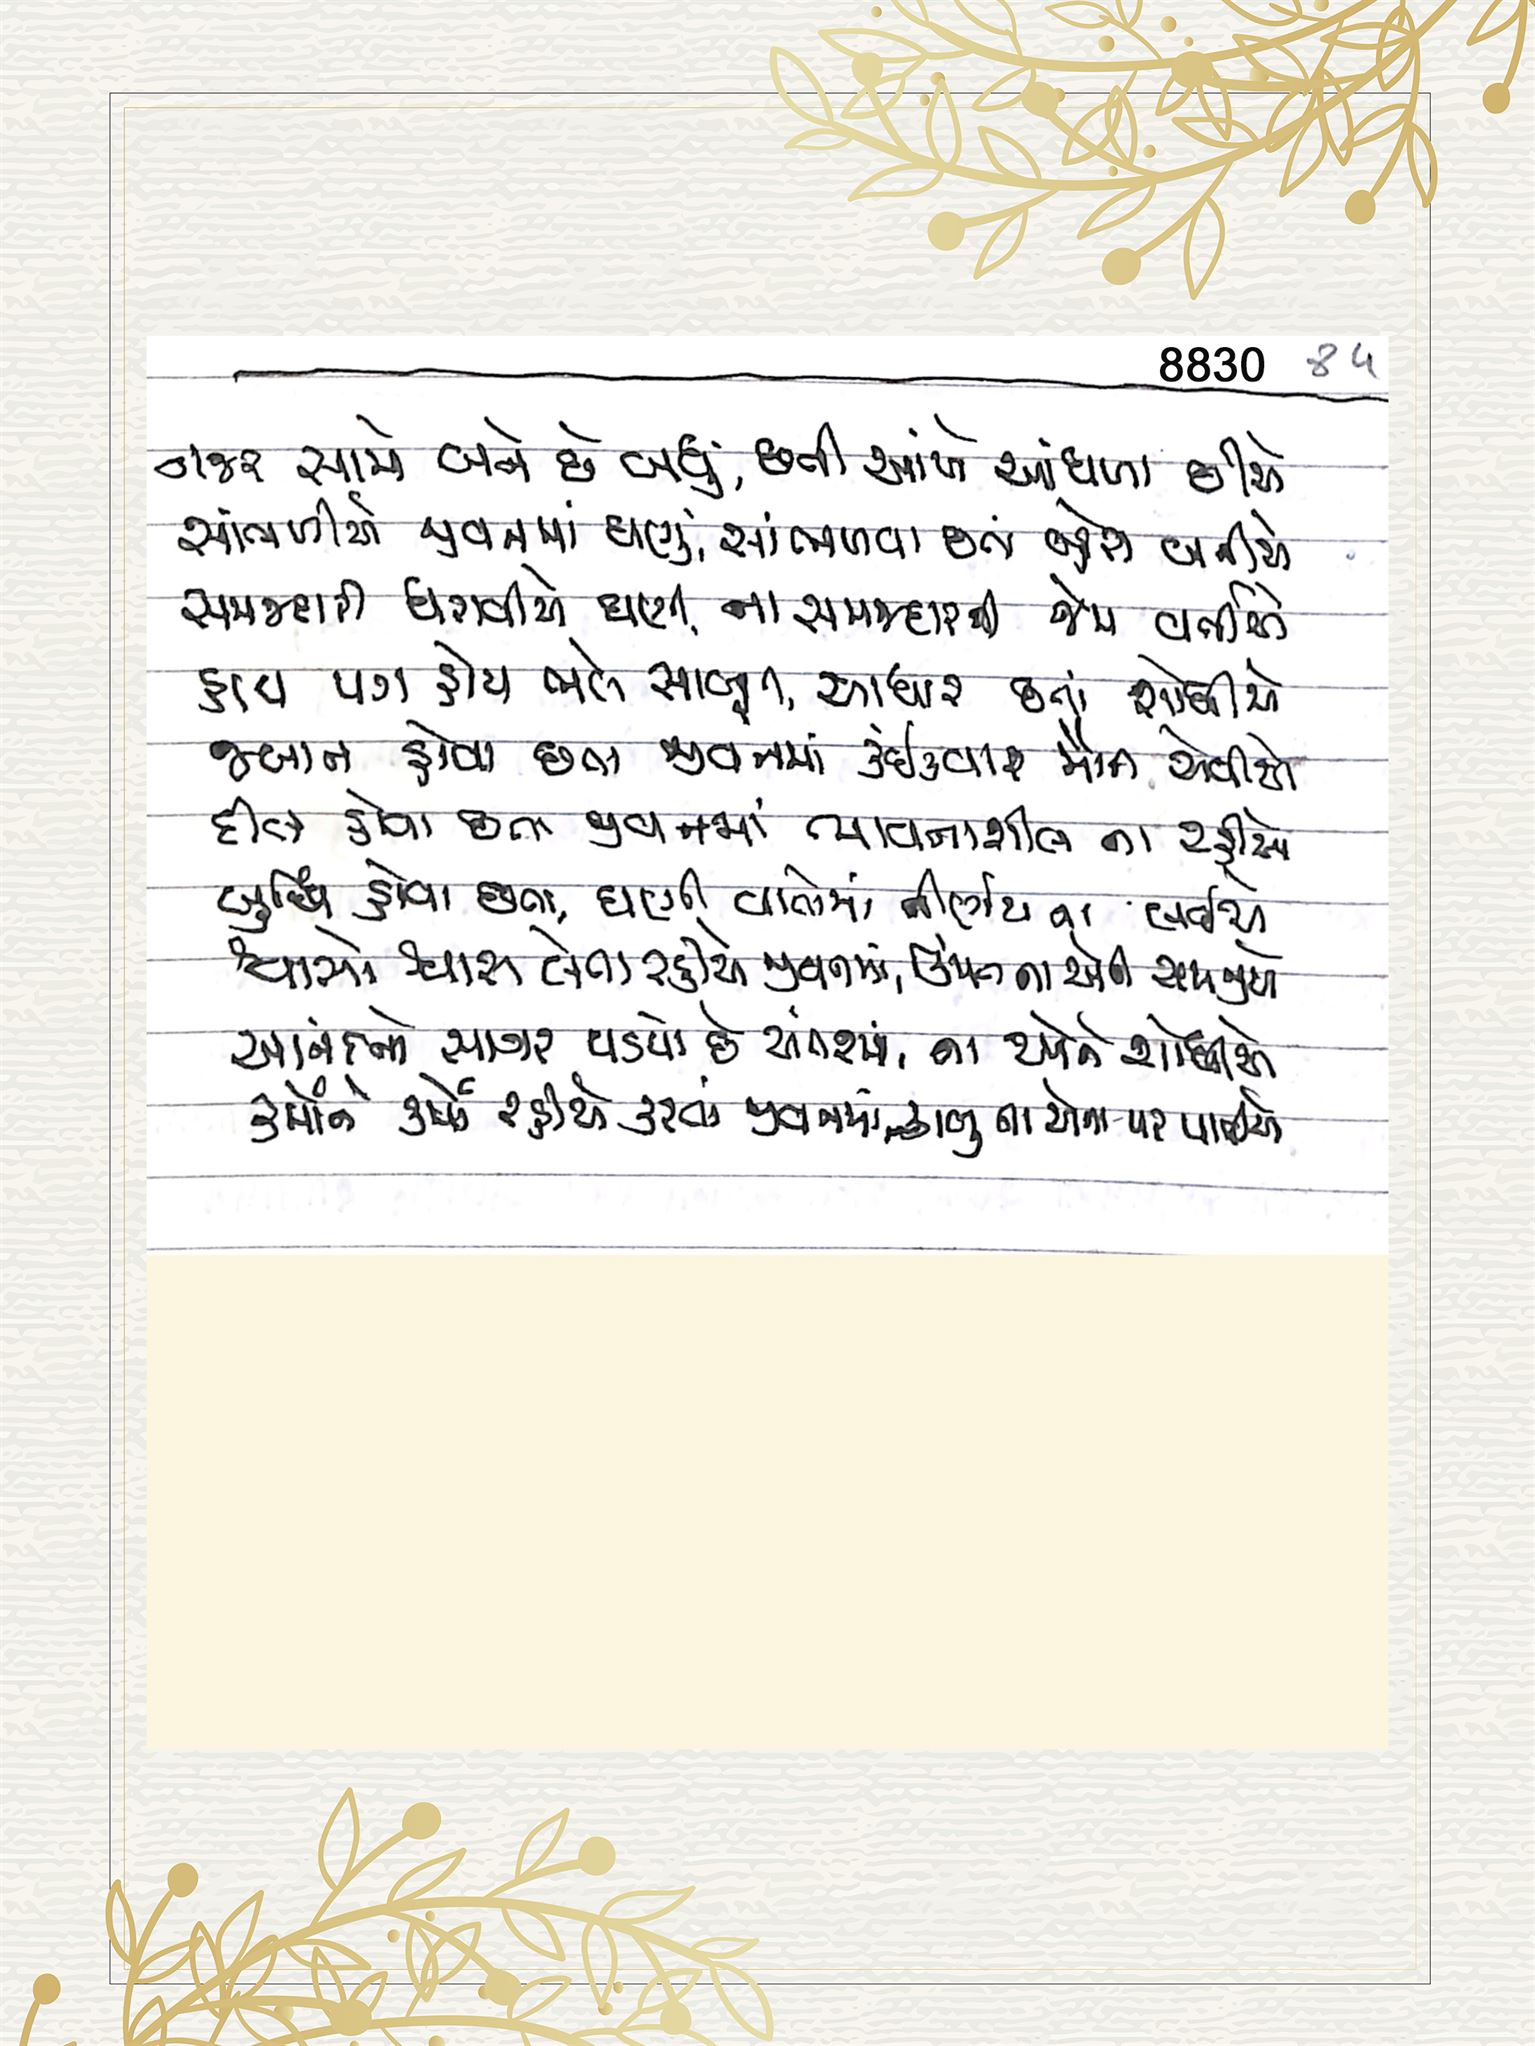 8830 84
નજર સામે બને છે બધું, છતી આંખે આંધળા છીએ
સાંભળીએ જીવનમાં ઘણું, સાંભળવા છતાં બહેરા બનીએ
સમજદારી ધરાવીએ ઘણી, ના સમજદારની જેમ વર્તીએ
હાથ પગ હોય ભલે સાબૂત, આધાર છતાં શોધીએ
જબાન હોવા છતા જીવનમાં કંઈકવાર મૌન સેવીએ
દીલ હોવા છતા જીવનમાં ભાવનાશીલ ના રહીએ
બુધ્ધિ હોવા છતા, ઘણી વાતોમાં નીર્ણય ના લઈએ
શ્વાસો શ્વાસ લેતા રહીએ જીવનમાં, કિંમત ના એની સમજીએ
આનંદનો સાગર પડયો છે અંતરમાં, ના એને શોધીએ
કર્મોને કર્મો રહીએ કરતાં જીવનમાં, કાબુ ના એના પર પામીએ